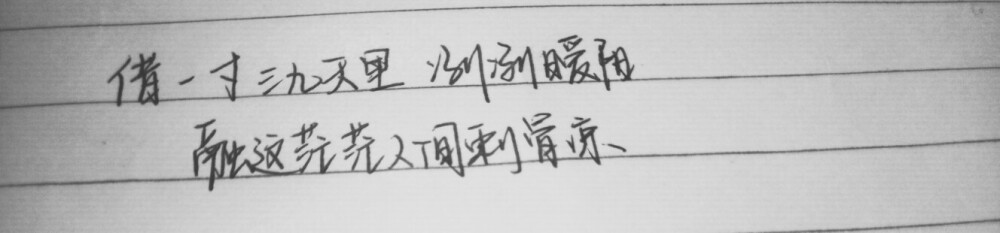 借一寸三九天里 冽冽暖阳
融这茫茫人间刺骨凉、